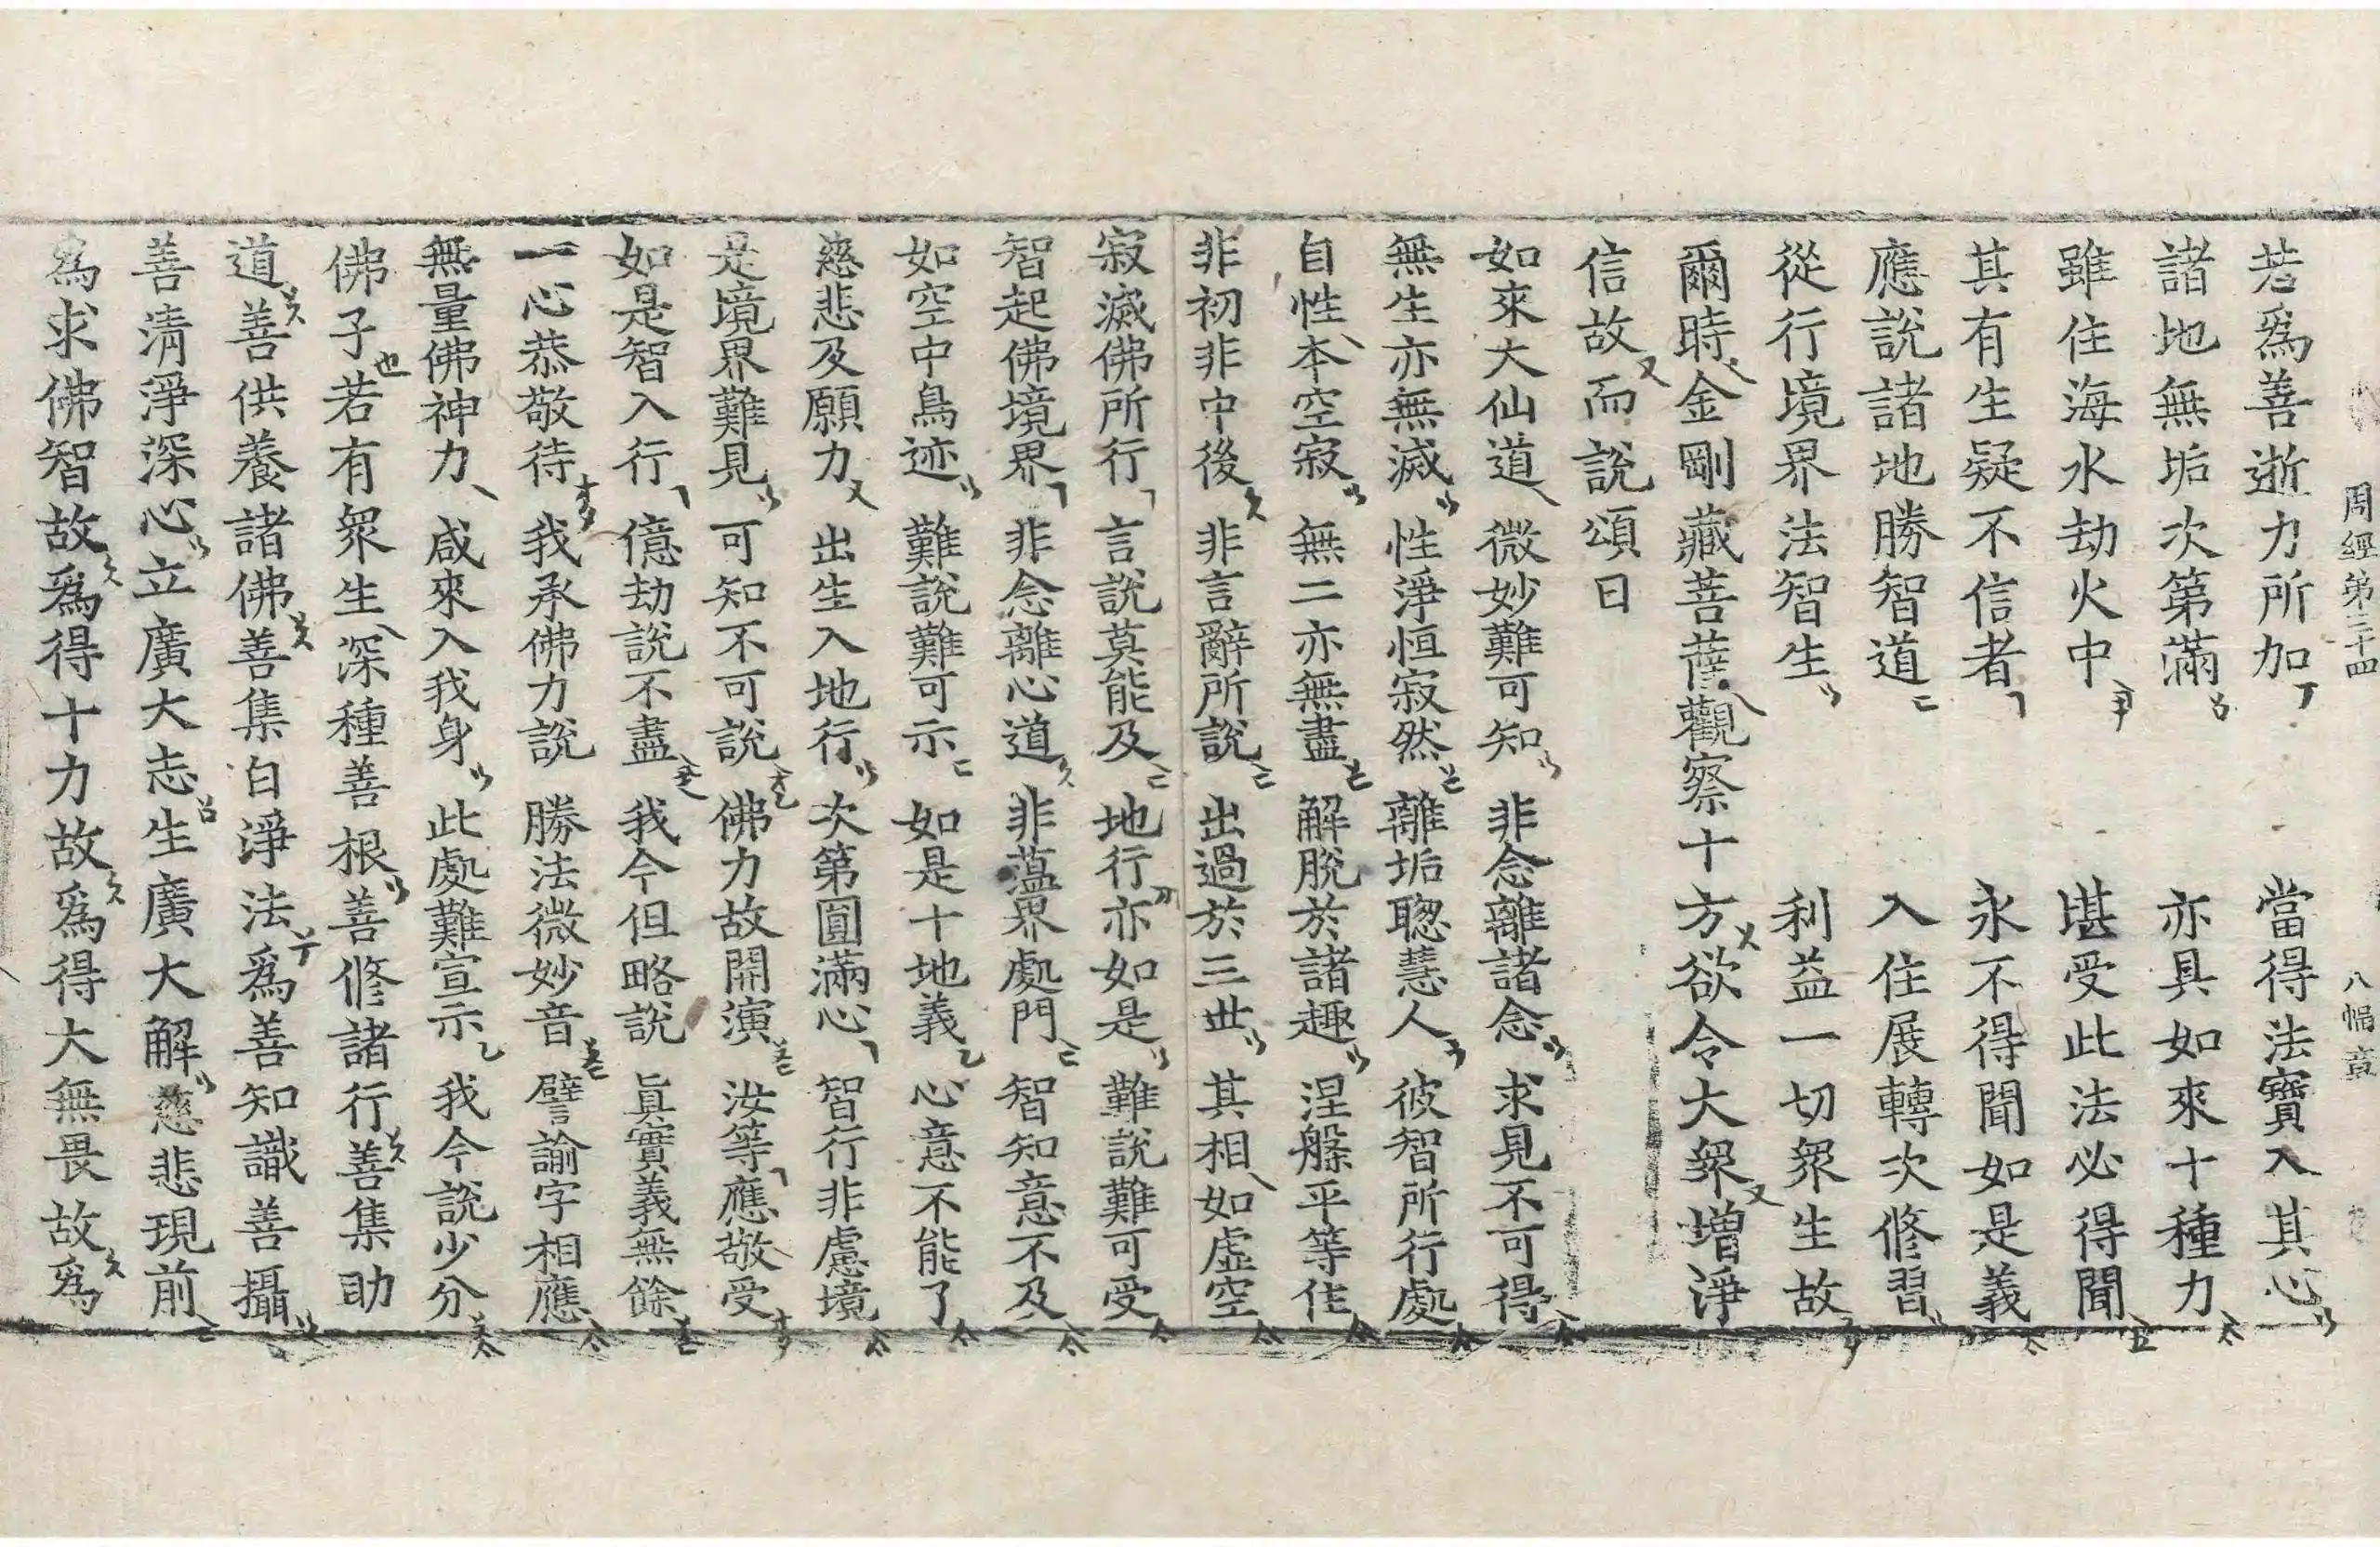 周經第三十四 八幅 章
若爲善逝力所加 當得法寶入其心
諸地無垢次第滿 亦具如來十種力
雖住海水劫火中 堪受此法必得聞
其有生疑不信者 永不得聞如是義
應說諸地勝智道 入住展轉次修習
從行境界法智生 利益一切衆生故
爾時金剛藏菩薩觀察十方欲令大衆增淨
信故而說頌曰
如來大仙道 微妙難可知 非念離諸念 求見不可得
無生亦無滅 性淨恒寂然 離垢聰慧人 彼智所行處
自性本空寂 無二亦無盡 解脫於諸趣 涅槃平等住
非初非中後 非言辭所說 出過於三世 其相如虛空
寂滅佛所行 言說莫能及 地行亦如是 難說難可受
智起佛境界 非念離心道 非蘊界處門 智知意不及
如空中鳥迹 難說難可示 如是十地義 心意不能了
慈悲及願力 出生入地行 次第圓滿心 智行非慮境
是境界難見 可知不可說 佛力故開演 汝等應敬受
如是智入行 億劫說不盡 我今但略說 眞實義無餘
一心恭敬待 我承佛力說 勝法微妙音 譬諭字相應
無量佛神力 咸來入我身 此處難宣示 我今說少分
佛子若有衆生深種善根善修諸行善集助
道善供養諸佛善集白淨法爲善知識善攝
善淸淨深心立廣大志生廣大解慈悲現前
爲求佛智故爲得十力故爲得大無畏故爲